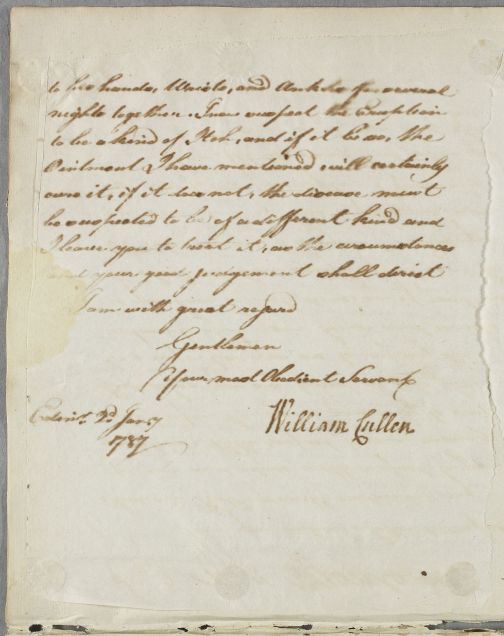 to his hands, Wrists, and Ankles for several
nights together. I now suspect the Eruption
to be a kind of Itch, and if it be so, the
Ointment I have mentioned will certainly
cure it, if it does not, the disease must
be suspected to be of a different kind and
I leave you to treat it, as the circumstances
and your good judgement shall direct
I am with great regard
Gentlemen
Your most Obedient Servant
William Cullen
Edinr. 2d Jany
1787